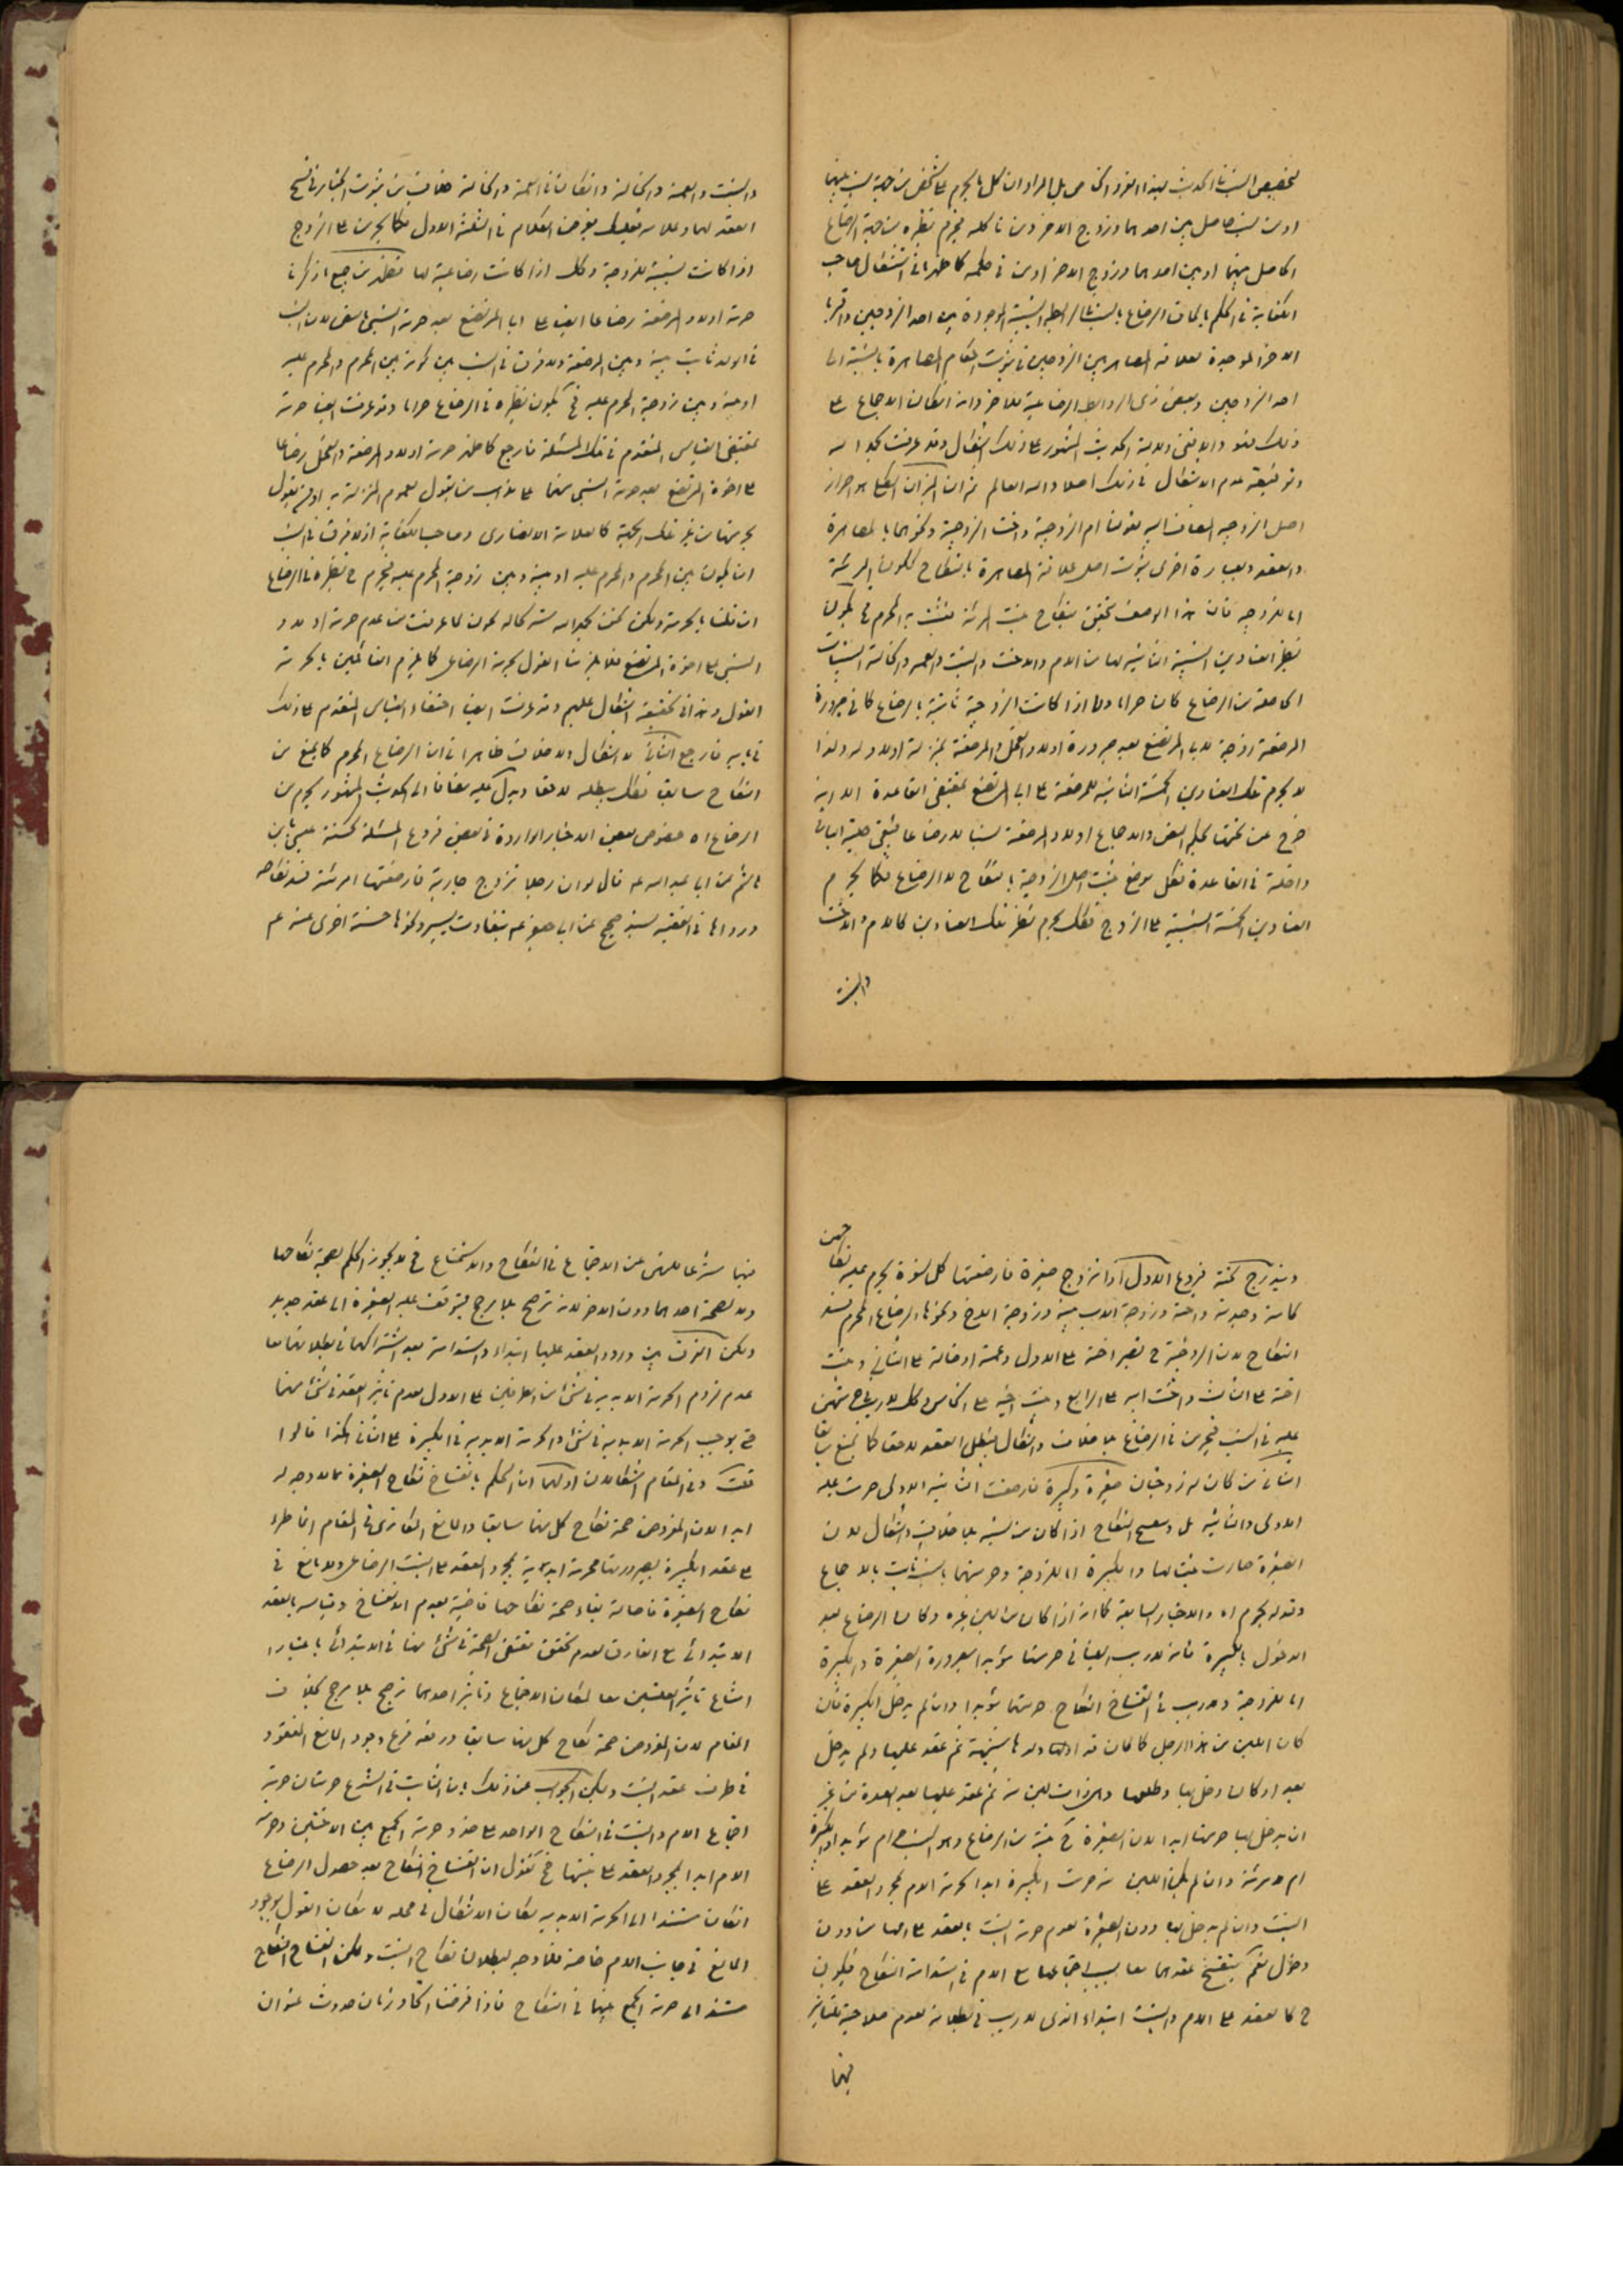 لتخصيص النسب في الحديث بهذا الفرد الخاص بل المراد ان كل ما يحرم على شخص من جهة نسب بينهما
او من نسب حاصل بين احدهما وزوج الاخر ومن ماثله فيحرم نظيره من جهة الرضاع
الحاصل بينهما او بين احدهما وزوج الاخر او من في حكمه كما ظهر انه استشكال صاحب
الكفاية في الحكم بالحاق الرضاع بالنسب في الرابطة النسبية الموجودة بين احد الزوجين واقرباء
الاخر الموجبة لعلاقة المصاهرة بين الزوجين في ثبوت احكام المصاهرة بالنسبة الى
احد الزوجين وبعض ذوي الروابط الرضاعية للاخر وانه ان كان الاجماع على
ذلك فهو والا ففي دلالة الحديث المشهور على ذلك اشكال وقد عرفت بحمد الله
وتوفيقه عدم الاشكال في ذلك اصلا والله العالم ثم ان الميزان الكلي هو احراز
اصل الزوجية المضاف اليه بقولنا ام الزوجة واخت الزوجة ونحوهما بالمصاهرة
والعقد وبعبارة اخرى ثبوت اصل علاقة المصاهرة بالنكاح ككون المرئة
اما للزوجة فان هذا الوصف يتحقق بنكاح بنت المرئة فيثبت به المحرم في يكون
نظير العناوين النسبية الثابتة لها من الام والاخت والبنت والعمة والخالة النسبيات
الحاصلة من الرضاع كان حراما واما اذا كانت الزوجية ثابتة بالرضاع كما في صيرورة
المرضعة زوجة لاب المرتضع بعد صيرورة اولاد الفحل والمرضعة بمنزلة اولاده ولذا
لا يحرم تلك العناوين الخمسة الثابتة للمرضعة على اب المرتضع بمقتضى القاعدة الا انه
خرج عن تحتها بحكم النص والاجماع اولاد المرضعة نسبا لا رضاعا فيبقى حلية الباقي
داخلة في القاعدة فكل موضع يثبت اصل الزوجية بالنكاح لا الرضاع فكما يحرم
العناوين الخمسة النسبية على الزوج فكذلك يحرم نظير تلك العناوين كالام والاخت
والبنت
والبنت والعمة والخالة وان كان في العمة والخالة خلاف من ثبوت الخيار في فسخ
العقد لهما وعدمه فعليك بفرض الكلام في الثلثة الاول فكما يحرمن على الزوج
اذا كانت نسبية للزوجة وكذلك اذا كانت رضاعية لها فظهر من جميع ما ذكرنا
حرمة اولاد المرضعة رضاعا ايضا على اب المرتضع بعد حرمة النسبي بالنص لان النسب
في الولد ثابت بينه وبين المرضعة ولا فرق في النسب بين كونه بين المحرم والمحرم عليه
او بينه وبين زوجة المحرم عليه في كون نظيره في الرضاع حراما وقد عرفت ايضا حرمة
بمقتضى القياس المتقدم في تلك المسئلة فارجع كما ظهر حرمة اولاد المرضعة والفحل رضاعا
على اخوة المرتضع بعد حرمة النسبي منهما على مذهب من يقول بعموم المنزلة به او من يقول
بحرمتها من غير تلك الجهة كالعلامة الانصاري وصاحب الكفاية اذ لا فرق في النسب
ان يكون بين المحرم والمحرم عليه او بينه وبين زوجة المحرم عليه فيحرم ح نظيره في الرضاع
ان قلنا بالحرمة ولكن نحن بحمد الله سبحانه لما عرفت من عدم حرمة اولاد
النسبي على اخوة المرتضع فلا يلزمنا القول بحرمة الرضاعي كما يلزم القائلين بالحرمة
القول وهذا في الحقيقة اشكال عليهم وقد عرفت ايضا اختفاء القياس المتقدم على ذلك
في بابه فارجع الثاني لا اشكال ولا خلاف ظاهرا في ان الرضاع المحرم كما يمنع من
النكاح سابقا فكذلك يبطله لاحقا ويدل عليه مضافا الى الحديث المشهور يحرم من
الرضاع اه خصوص بعض الاخبار الواردة في بعض فروع المسئلة كحسنة عيسى بن
هاشم عن ابي عبد الله ع قال لو ان رجلا تزوج جارية فارضعتها امرئته فسد نكاحه
ورواها في الفقيه بسند صحيح عن ابي جعفر ع بتفاوت يسير ونحوها حسنة اخرى عنه ع
ويندرج تحته فروعا الاول اذا تزوج صغيرة فارضعتها كل نسوة يحرم عليه نكاحهن
كامه وجدته واخته وزوجة الاب منه وزوجة الاخ ونحوها الرضاع المحرم يفسد
النكاح لان الزوجة ح تصير اخته على الاول وعمته او خالته على الثاني وبنت
اخته على الثالث واخت ابيه على الرابع وبنت اخيه على الخامس وكل لا ريب في حرمتهن
عليه في النسب فيحرمن في الرضاع بلا خلاف واشكال فيبطل العقد لاحقا كما يمنع سابقا
الثاني من كان له زوجتان صغيرة وكبيرة فارضعت الثانية الاولى حرمت عليه
الاولى والثانية بل وينفسخ النكاح اذا كان من لبنه بلا خلاف واشكال لان
الصغيرة صارت بنتا لها والكبيرة اما للزوجة وحرمتهما بالنسب ثابت بالاجماع
وقوله يحرم اه والاخبار السابقة كما انه اذا كان من لبن غيره وكان الرضاع بعد
الدخول بالكبيرة فانه لا ريب ايضا في حرمتهما مؤبدا لصيرورة الصغيرة والكبيرة
اما للزوجة ولا ريب في انفساخ النكاح وحرمتهما مؤبدا وان لم يدخل الكبيرة فان
كان اللبن من هذا الرجل كما لو كان قد اولدها بشبهة ثم عقد عليها ولم يدخل
بعد او كان دخل بها وطلقها وهي ذات لبن منه ثم عقد عليها بعد العدة من غير
ان يدخل بها حرمتا ابدا لان الصغيرة ح بنته من الرضاع وهو النسب حرام مؤبدا والكبيرة
ام امرئته وان لم يكن اللبن منه حرمت الكبيرة ابدا كحرمة الام بمجرد العقد على
البنت وان لم يدخل بها دون الصغيرة لعدم حرمة البنت بالعقد على امها من دون
دخول نعم ينفسخ عقدهما معا لسبب اجتماعها مع الام في استدامة النكاح فيكون
ح كالعقد على الام والبنت ابتداء الذي لا ريب في بطلانه لعدم صلاحية للتاثير
فيهما
فيهما شرعا للنهي عن الاجتماع في النكاح والاستمتاع ح لا يجوز الحكم بصحة نكاحهما
ولا بصحة احدهما دون الاخر لانه ترجيح بلا مرجح فيتوقف حلية الصغيرة الى عقد جديد
ولكن الفرق بين ورود العقد عليهما ابتداء واستدامة بعد اشتراكهما في بطلانهما معا
عدم لزوم الحرمة الابدية في شئ من الطرفين على الاول لعدم تاثير العقد في شئ منهما
حتى يوجب الحرمة الابدية في شئ والحرمة الابدية في الكبيرة على الثاني هكذا قالوا
قلت وفي المقام اشكالان اولهما ان الحكم بانفساخ نكاح الصغيرة مما لا وجه له
ابدا لان المفروض صحة نكاح كل منهما سابقا والمانع الطاري في المقام انما طرء
على عقد الكبيرة بصيرورتها محرمة ابدية بمجرد العقد على البنت الرضاعي ولا مانع في
نكاح الصغيرة فاصالة بقاء صحة نكاحها قاضية بعدم الانفساخ وقياسه بالعقد
الابتدائي مع الفارق لعدم تحقق مقتضى الصحة في شئ منهما في الابتدائي باعتبار
امتناع تاثير العلتين معا لمكان الاجماع وتاثير احدهما ترجيح بلا مرجح بخلاف
المقام لان المفروض صحة نكاح كل منهما سابقا ورفعه فرع وجود المانع المفقود
في طرف عقد البنت ويمكن الجواب عن ذلك بان الثابت في الشرع حرمتان حرمة
اجتماع الام والبنت في النكاح الواحد على حذو حرمة الجمع بين الاختين وحرمة
الام ابدا بمجرد العقد على بنتها ح نقول ان انفساخ النكاح بعد حصول الرضاع
ان كان مستندا الى الحرمة الابدية لكان الاشكال في محله لا مكان القول بوجود
المانع في جانب الام خاصة فلا وجه لبطلان نكاح البنت ولكن انفساخ النكاح
مستند الى حرمة الجمع بينهما في النكاح فاذا فرضنا اتحاد زمان حدوث عنوان